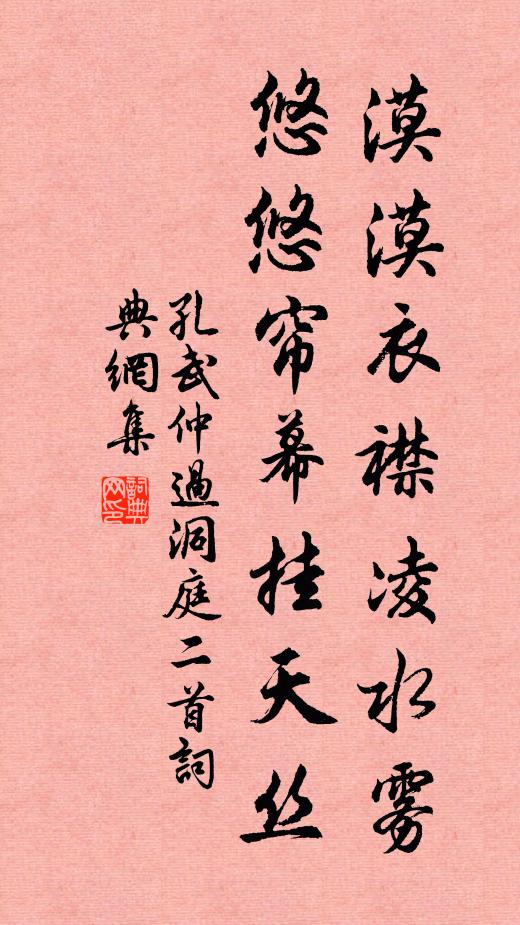 漠漠衣襟凌水雾
悠悠帘幕挂天丝
孔武仲過洞庭二首詞
典網集
詞典网印